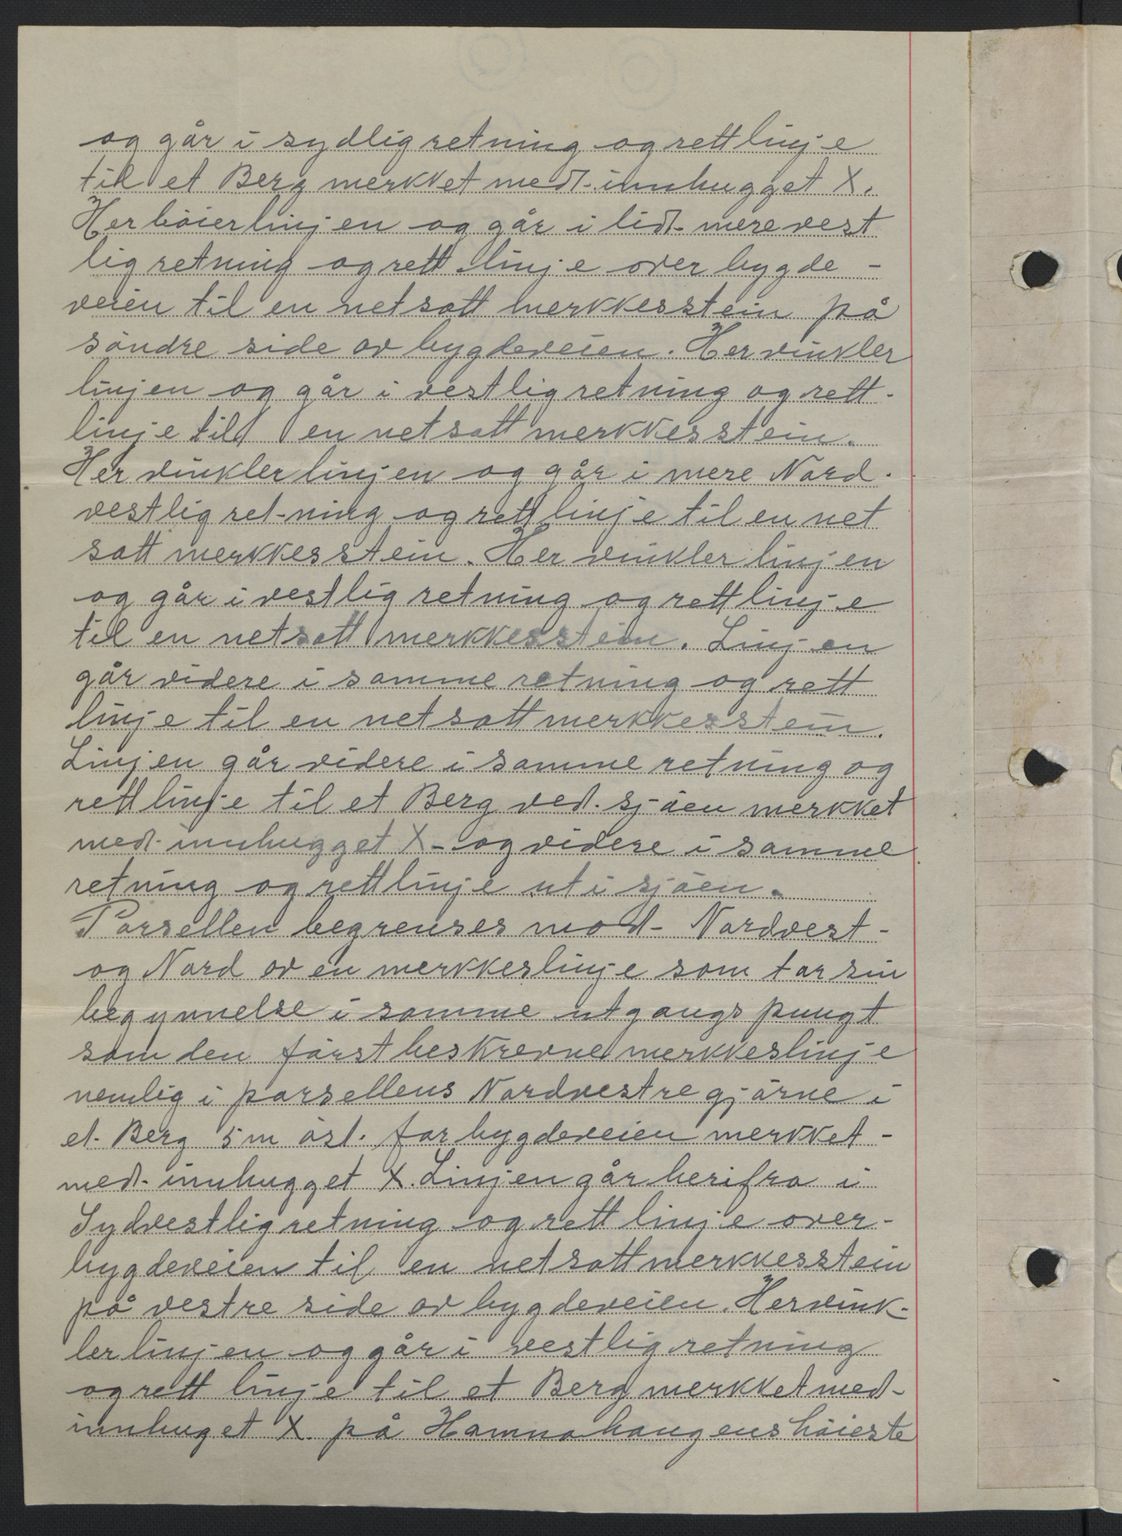 og går i sydlig retning og rett linje
til et Berg merkket med innhugget X.
Her böier linjen og går i lidt mere vest
lig retning og rett linje over bygde -
veien til en netsatt merkkesstein på
söndre side av bygdeveien. Her vinkler
linjen og går i vestlig retning og rett
linje til en netsatt merkkesstein.
Her vinkler linjen og går i mere Nord
vestlig retning og rett linje til en net
satt merkkesstein. Her vinkler linjen
og går i vestlig retning og rett linje
til en netsatt merkkesstein. Linjen
går videre i samme retning og rett
linje til en netsatt merkkesstein.
Linjen går videre i samme retning og
rett linje til et Berg ved sjöen merkket
med innhugget X og videre i samme
retning og rett linje ut i sjöen.
Parsellen begrenses mod Nordvest -
og Nord av en merkkeslinje som tar sin
begynnelse i samme utgangs pungt
som den först beskrevne merkkeslinje
nemlig i parsellens Nordvestre gjörne i
et Berg 5 m öst for bygdeveien merkket -
med innhugget X. Linjen går herifra i
Sydvestlig retning og rett linje over -
bygdeveien til en netsatt merkkesstein
på vestre side av bygdeveien. Her vink-
ler linjen og går i vestlig retning
og rett linje til et Berg merkket med -
innhuget X. på Hamnahaugens höieste